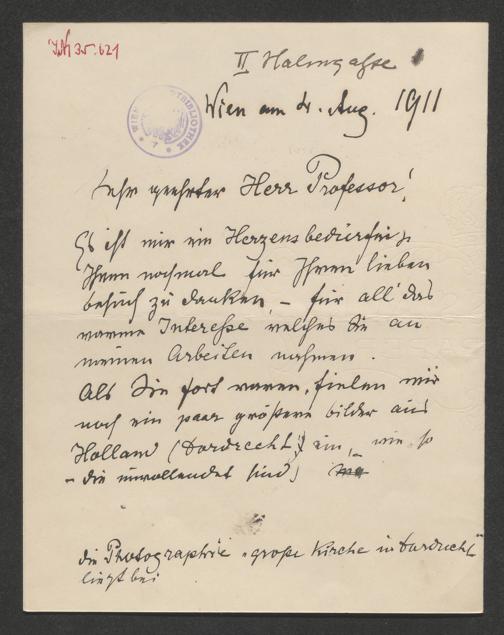 JN 35.621
II Halmgasse
Wien am 4. Aug. 1911
WIEN STBIBLIOTHEK
Sehr geehrter Herr Professor!
Es ist mir ein Herzensbedürfnis
Ihnen nochmal für Ihren lieben
besuch zu danken, – für all' das
warme Interesse welches Sie an
meinen Arbeiten nahmen.
Als Sie fort waren, fielen mir
noch ein paar größere bilder aus
Holland (Dordrecht) ein, – wie so
– die unvollendet sind)
die Photographie „große Kirche in Dordrecht"
liegt bei